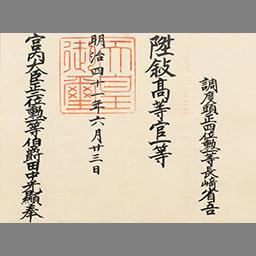 調度頭正四位勲一等長崎省吾
陞敍高等官一等
天皇御璽
明治四十一年六月廿三日
宮内大臣正二位勲一等伯爵田中光顯奉